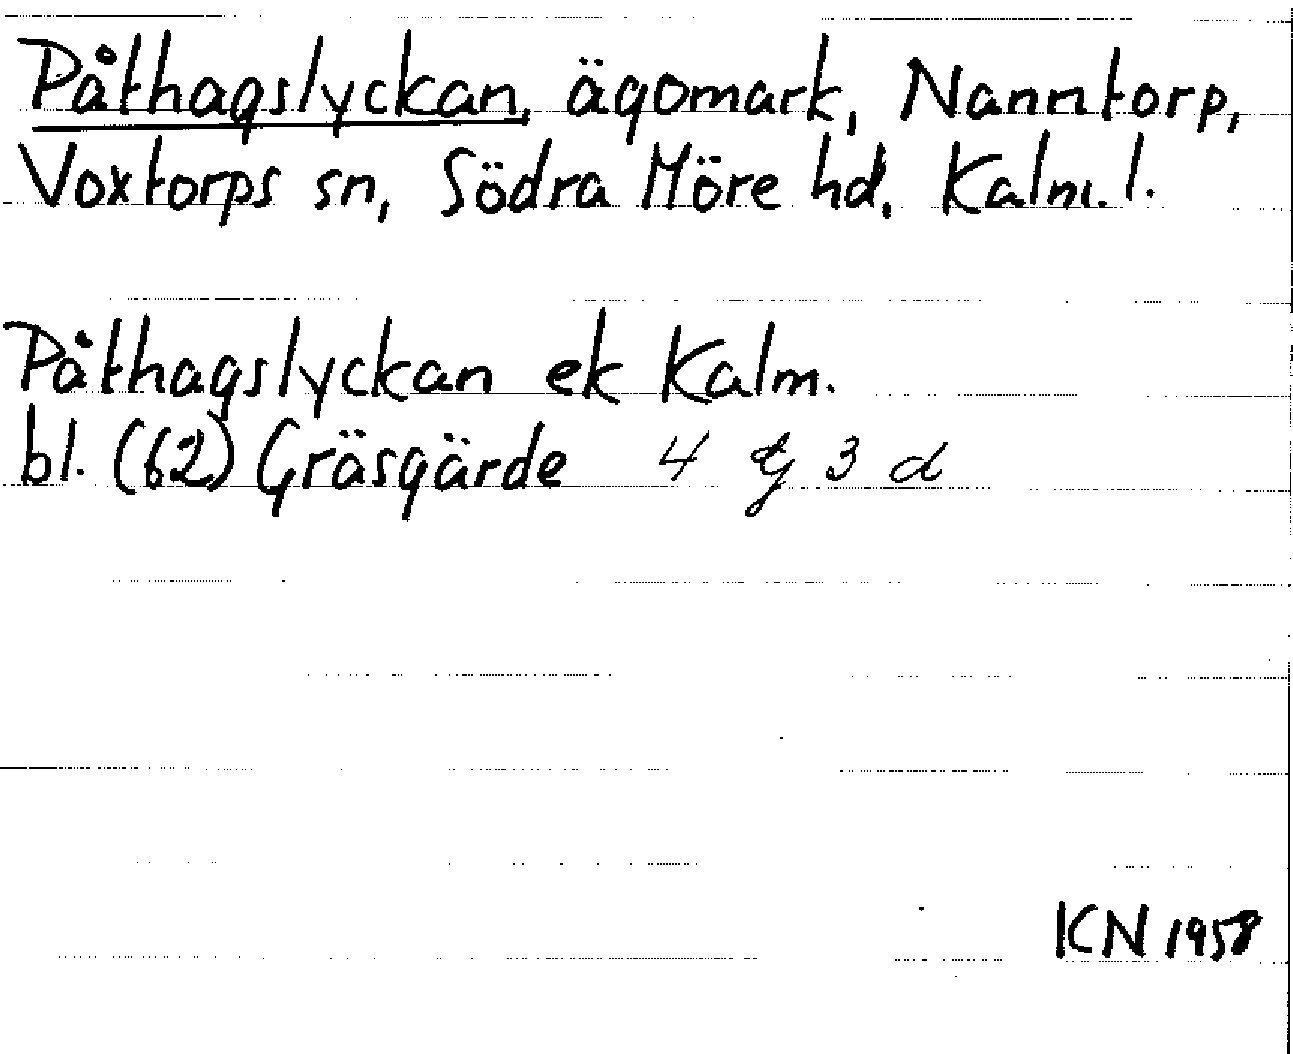 Påthagslyckan, ägomark, Nanntorp,
Voxtorps sn, Södra Möre hd, Kalm. l.
Påthagslyckan ek Kalm.
bl. (62) Gräsgärde 4 g 3 d
KN 1958